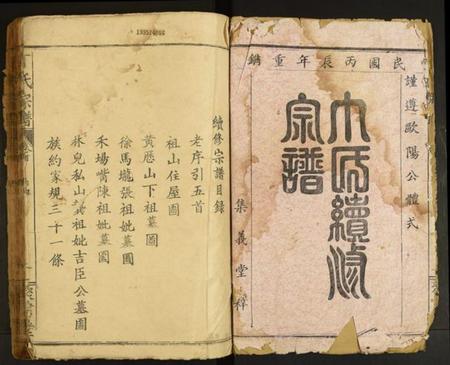 民國丙辰年重鐫
謹遵歐陽公體式
續修
宗譜
集義堂梓
133524066
續修宗譜目錄
老序引五首
祖山住屋圖
黃應山下祖墓圖
徐馬壠張祖妣墓圖
禾場嘴陳祖妣墓圖
林兒私山黃祖妣吉臣公墓圖
族約家規三十一條
氏宗譜